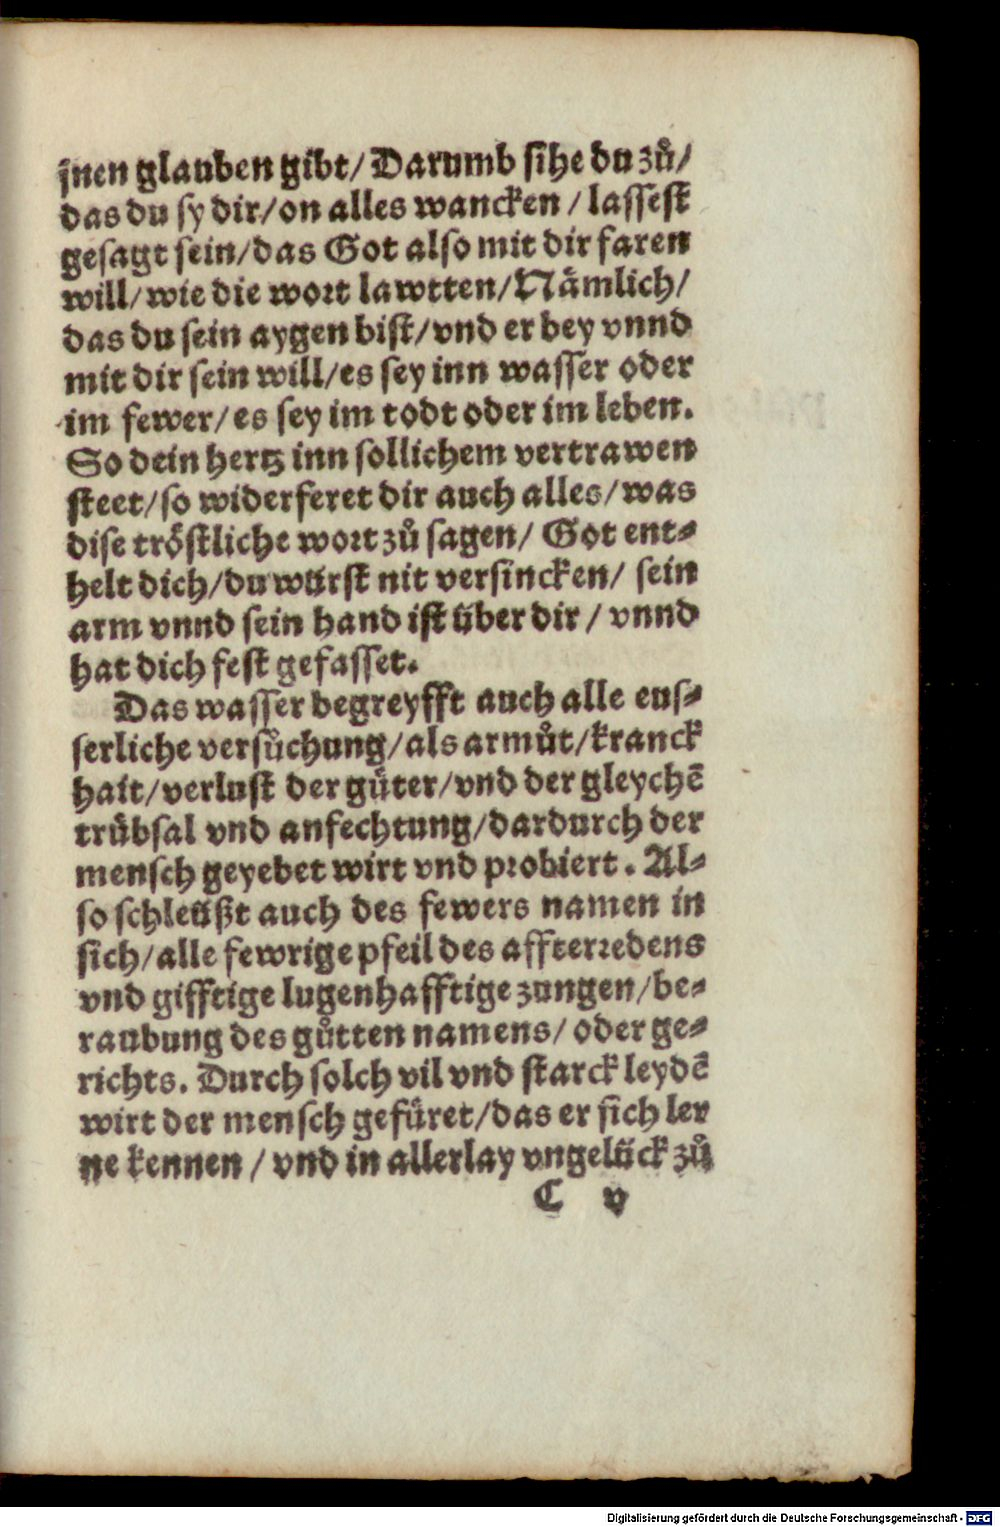 jnen glauben gibt/ Darumb sihe du zů/
das du sy dir/on alles wancken / lassest
gesagt sein/das Got also mit dir faren
will/wie die wort lawtten/Nämlich/
das du sein aygen bist/vnd er bey vnnd
mit dir sein will/es sey inn wasser oder
im fewer/es sey im todt oder im leben.
So dein hertz inn sollichem vertrawen
steet/so widerferet dir auch alles/was
dise tröstliche wort zů sagen/ Got ent-
helt dich/du würst nit versincken/ sein
arm vnnd sein hand ist über dir / vnnd
hat dich fest gefasset.
Das wasser begreyfft auch alle eus-
serliche versůchung/als armůt/kranck
hait/verlust der güter/vnd der gleychē
trübsal vnd anfechtung/dardurch der
mensch geyebet wirt vnd probiert. Al-
so schleüßt auch des fewers namen in
sich/alle fewrige pfeil des affterredens
vnd gifftige lugenhafftige zungen/be-
raubung des gůtten namens/ oder ge-
richts. Durch solch vil vnd starck leydē
wirt der mensch gefüret/das er sich ler
ne kennen / vnd in allerlay vngelück zů
C v
Digitalisierung gefördert durch die Deutsche Forschungsgemeinschaft - DFG